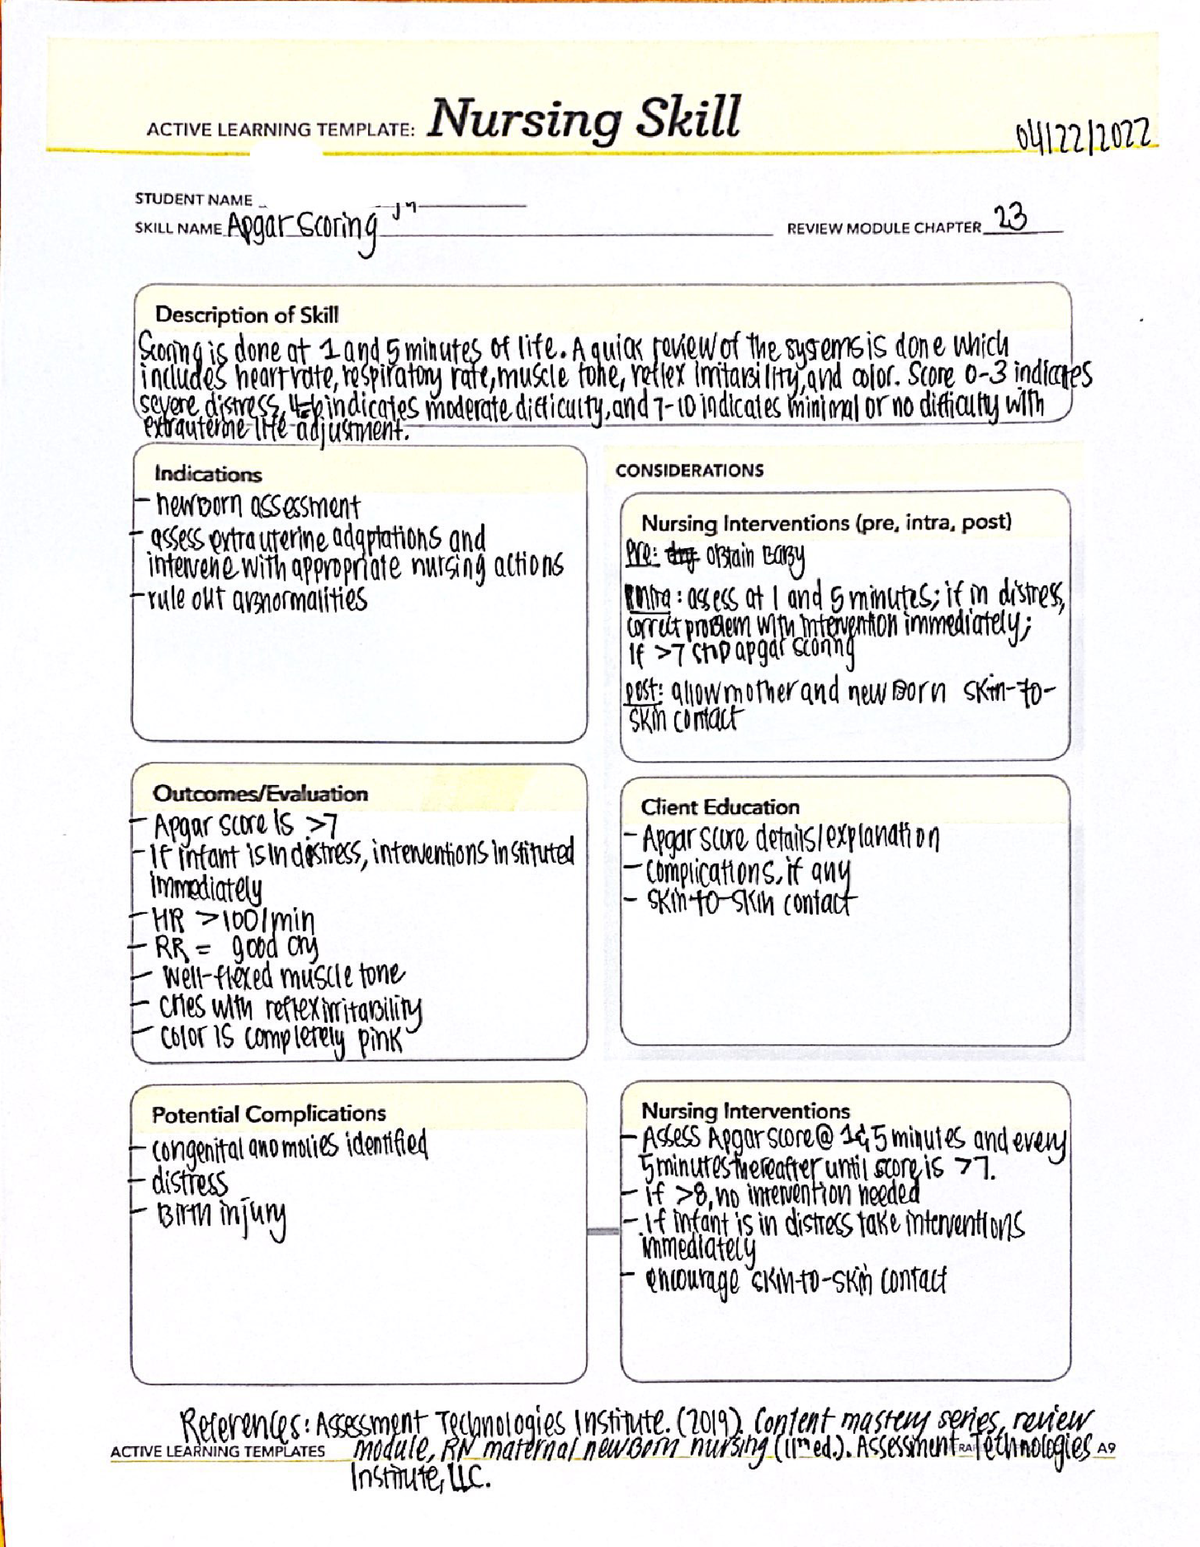 ACTIVE LEARNING TEMPLATE: Nursing Skill
04/22/2022
STUDENT NAME
SKILL NAME Apgar Scoring
REVIEW MODULE CHAPTER 23
Description of Skill
Scoring is done at 1 and 5 minutes of life. A quick review of the systems is done which
includes heart rate, respiratory rate, muscle tone, reflex irritability, and color. Score 0-3 indicates
severe distress, 4-6 indicates moderate difficulty, and 7-10 indicates minimal or no difficulty with
extrauterine life adjustment.
Indications
- newborn assessment
- assess extrauterine adaptations and
intervene with appropriate nursing actions
- rule out abnormalities
CONSIDERATIONS
Nursing Interventions (pre, intra, post)
Pre: obtain baby
Intra: assess at 1 and 5 minutes; if in distress,
correct problem with intervention immediately;
if >7 stop apgar scoring
post: allow mother and newborn skin-to-
skin contact
Outcomes/Evaluation
- Apgar score is >7
- If infant is in distress, interventions instituted
immediately
- HR >100/min
- RR = good cry
- well-flexed muscle tone
- cries with reflex irritability
- color is completely pink
Client Education
- Apgar score details/explanation
- complications, if any
- skin-to-skin contact
Potential Complications
- congenital anomolies identified
- distress
- Birth injury
Nursing Interventions
- Assess Apgar score @ 1 & 5 minutes and every
5 minutes thereafter until score is >7.
- if >8, no intervention needed
- if infant is in distress take interventions
immediately
- encourage skin-to-skin contact
References: Assessment Technologies Institute. (2019). Content mastery series, review
module, RN maternal newborn nursing (11th ed.). Assessment Technologies
Institute, LLC.
ACTIVE LEARNING TEMPLATES
A9